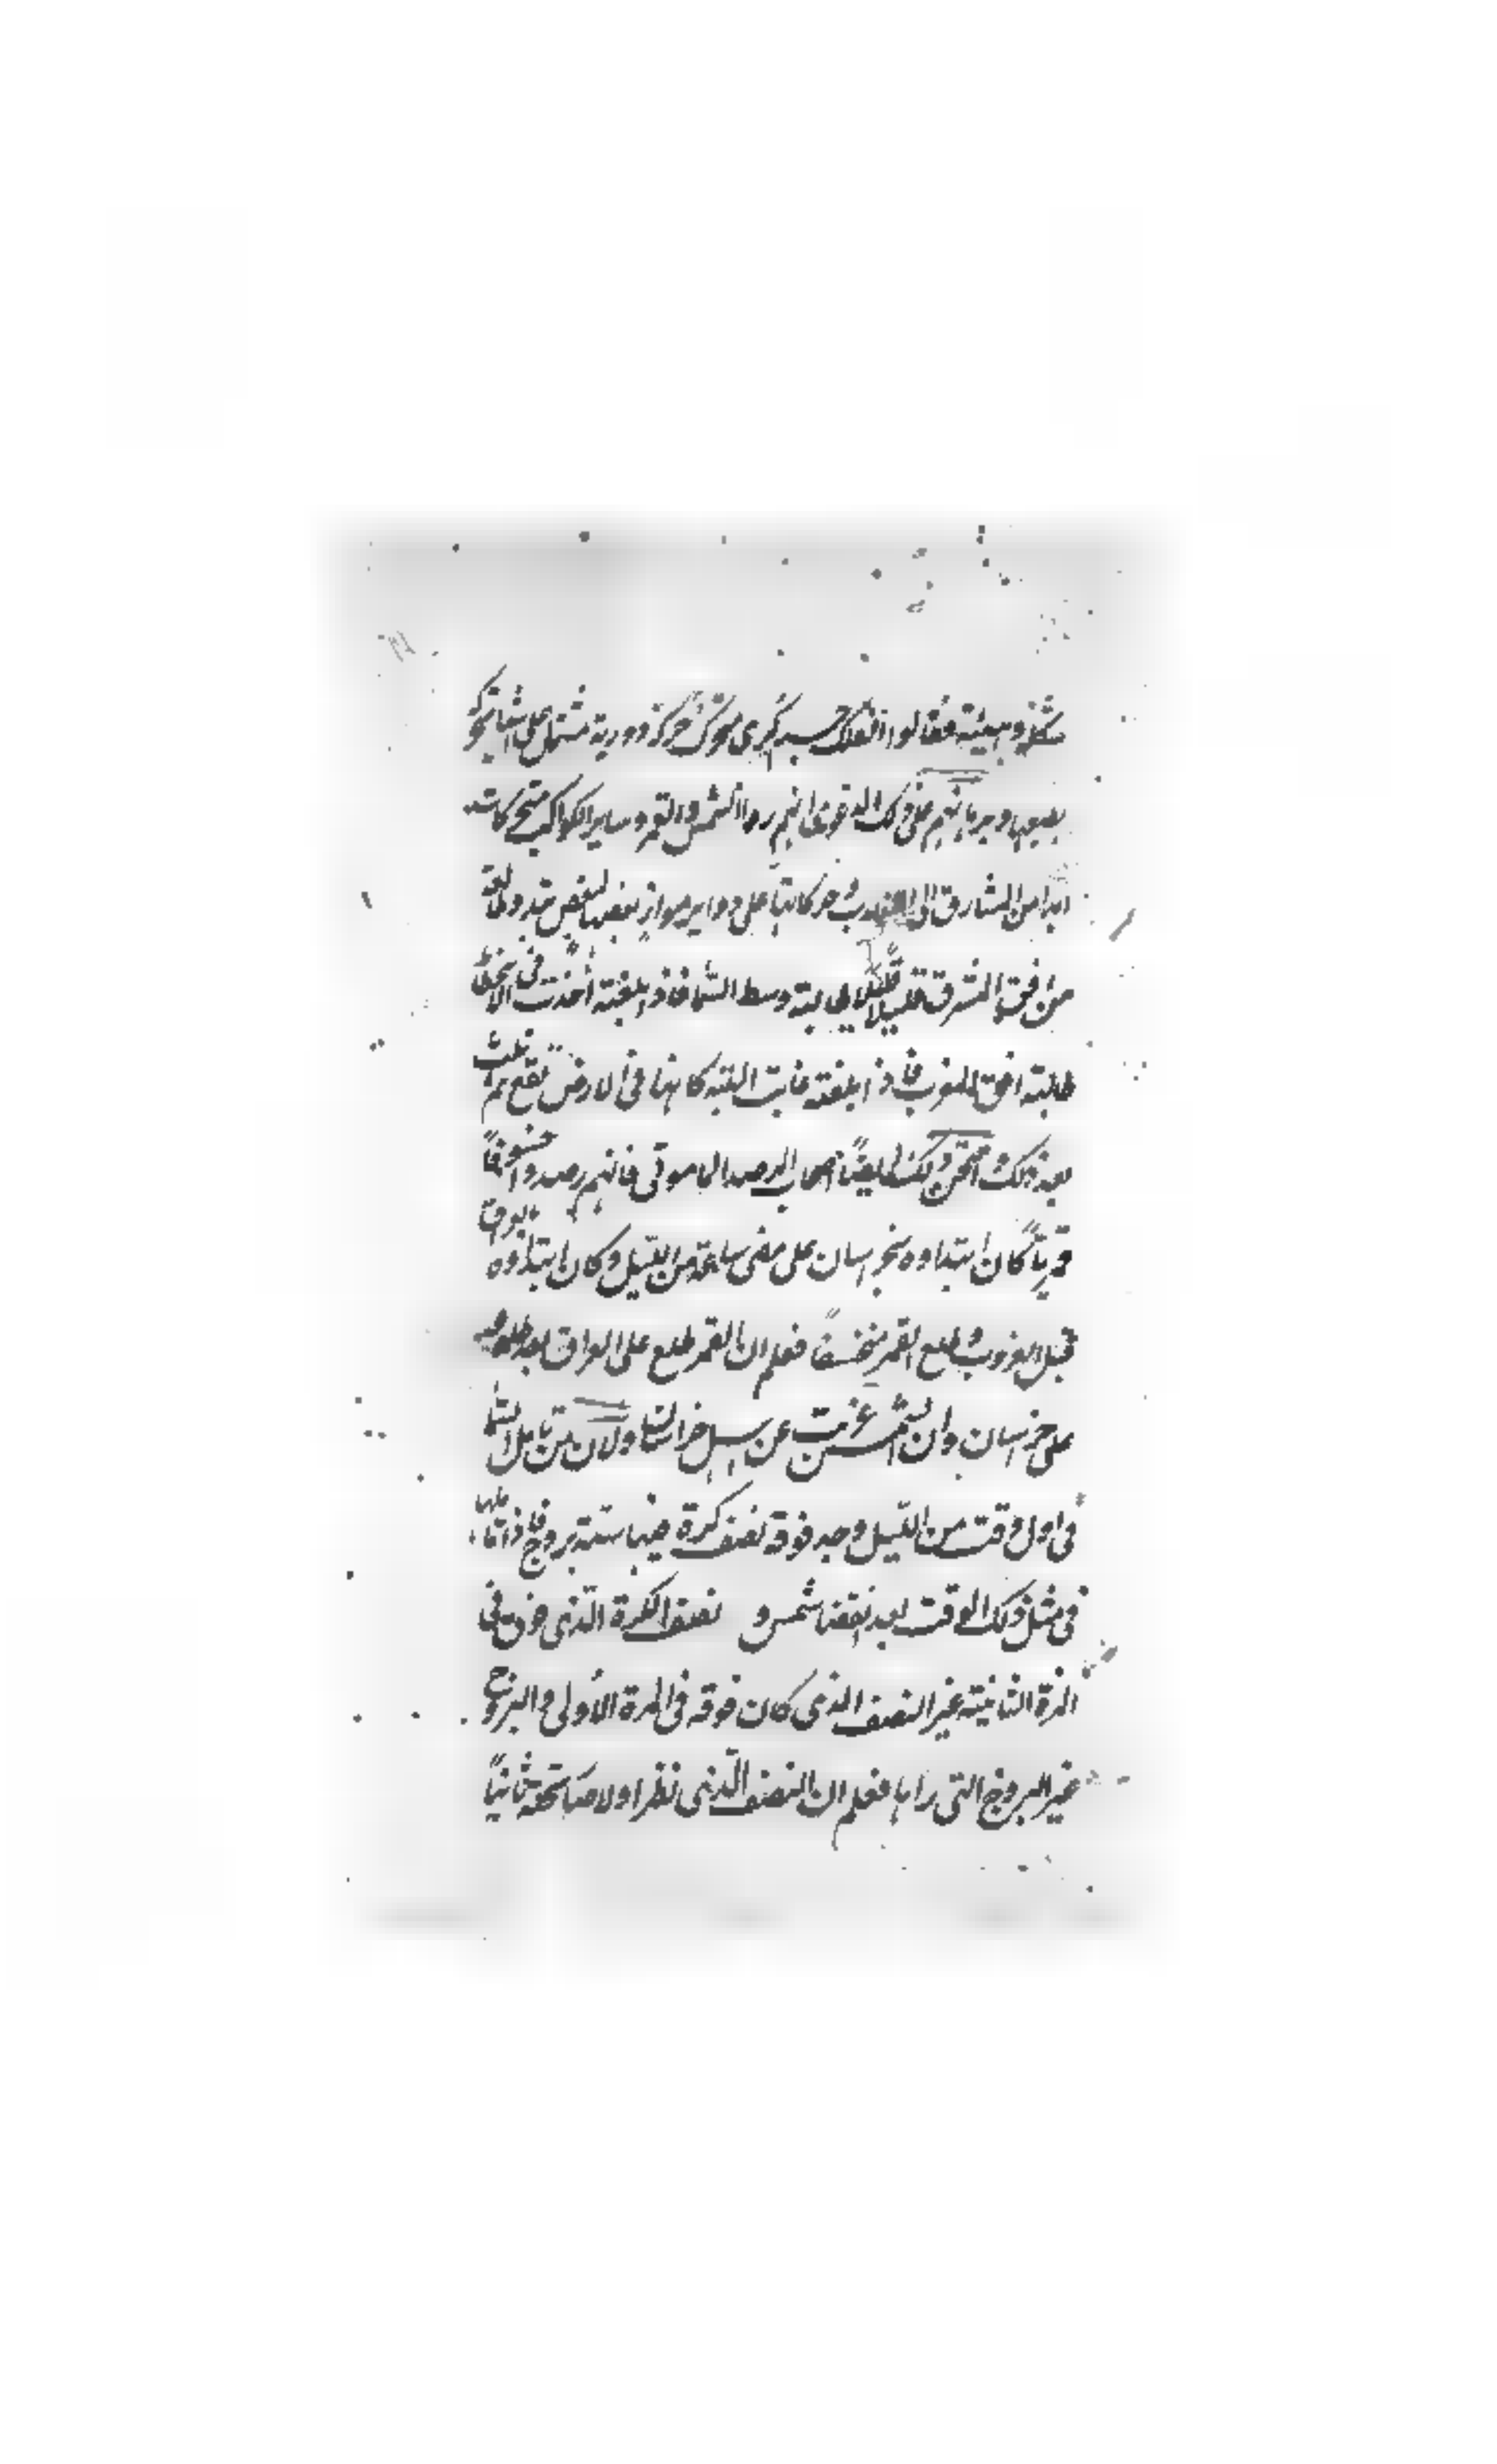 شكله وهيئته فقالوا الفلك جسم كرى متحرك حركة دورية مشتمل على اشيا متحركة
وبرهانهم على ذلك الدعوى انهم راوا الشمس والقمر وساير الكواكب متحركات
ابدا من المشارق الى المغارب حركاتها على دواير مواز بعضها لبعض
من افق المشرق قليلا قليلا طالبة وسط السما فاذا بلغته اخذت فى الانحطاط
طالبة افق المغرب فاذا بلغته غابت البتة كانها فى الارض تقع ثم
بعد ذلك ايضا اصحاب الرصد المامونى فانهم رصدوا خسوفا
قمريا كان ابتداوه بخراسان على مضى ساعة من الليل وكان ابتداوه بالعراق
قبل الغروب وطلع القمر منخسفا فعلم ان القمر طلع على العراق بعد طلوعه
على خراسان وان الشمس غربت عن اهل خراسان ولان من تامل السما
فى اول وقت من الليل وجد فوقه نصف كرة فيها ستة بروج فاذا تاملها
فى مثل ذلك الوقت بعد انقضا نصف الكرة الذى فوق فى
المرة الثانية غير النصف الذى كان فوقه فى المرة الاولى والبروج
غير البروج التى راها فعلم ان النصف الذى نظر اولا صار تحته ثانيا